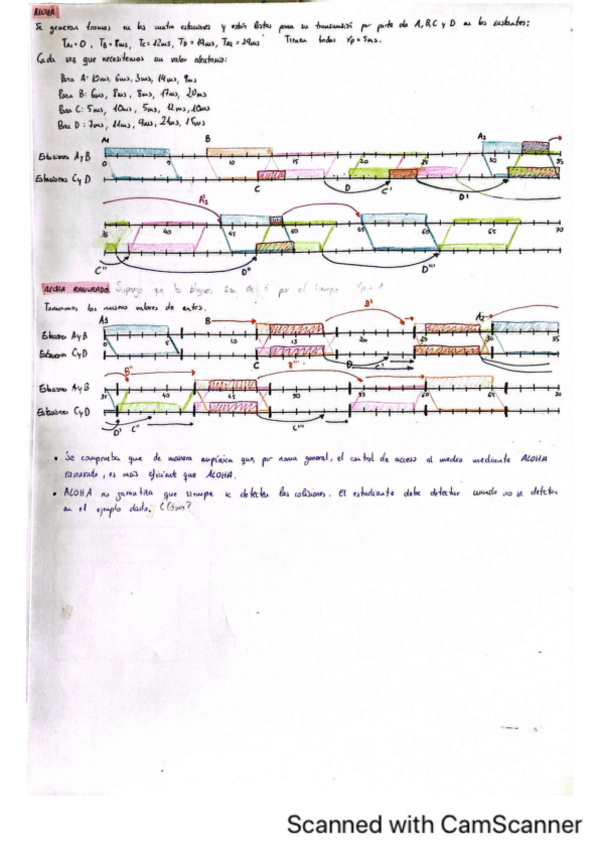 ALOHA
Se generan tramas en las cuatro estaciones y están listas para su transmisión por parte de A, B, C y D en los instantes:
TA1=0, TB=8ms, TC=12ms, TD=19ms, TA2=29ms Tienen todas
Cada vez que necesitemos un valor aleatorio:
Para A: 10ms, 6ms, 3ms, 14ms, 9ms
Para B: 6ms, 8ms, 8ms, 17ms, 20ms
Para C: 5ms, 10ms, 5ms, 12ms, 10ms
Para D: 7ms, 11ms, 9ms, 15ms
A1 B A2
Estaciones A y B
0 5 10 15 20 25 30 35
Estaciones C y D
C D C' D'
A2'
35 45 60 65 70
C'' D'' D'''
ALOHA RANURADO
Tomamos los mismos valores de antes.
A1 B B' A2
Estaciones A y B
0 5 10 20 35
Estaciones C y D
C D C' B'''
B''
Estaciones A y B
40 45 60 65 70
Estaciones C y D
D' C'' C'''
• Se comprueba que de manera empírica que, por norma general, el control de acceso al medio mediante ALOHA
ranurado, es más eficiente que ALOHA.
• ALOHA no garantiza que siempre se detecten las colisiones. El estudiante debe detectar cuando no se detectan
en el ejemplo dado.
Scanned with CamScanner